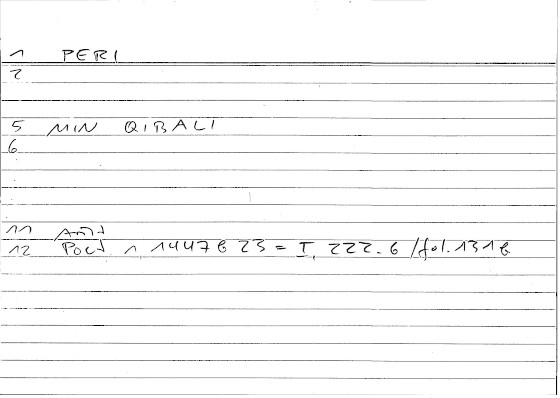 1 PERI
2
5 MIN QIBALI
6
11 Ar
12 Poet 1 1447b 23 = I, 222.6 /fol.131b